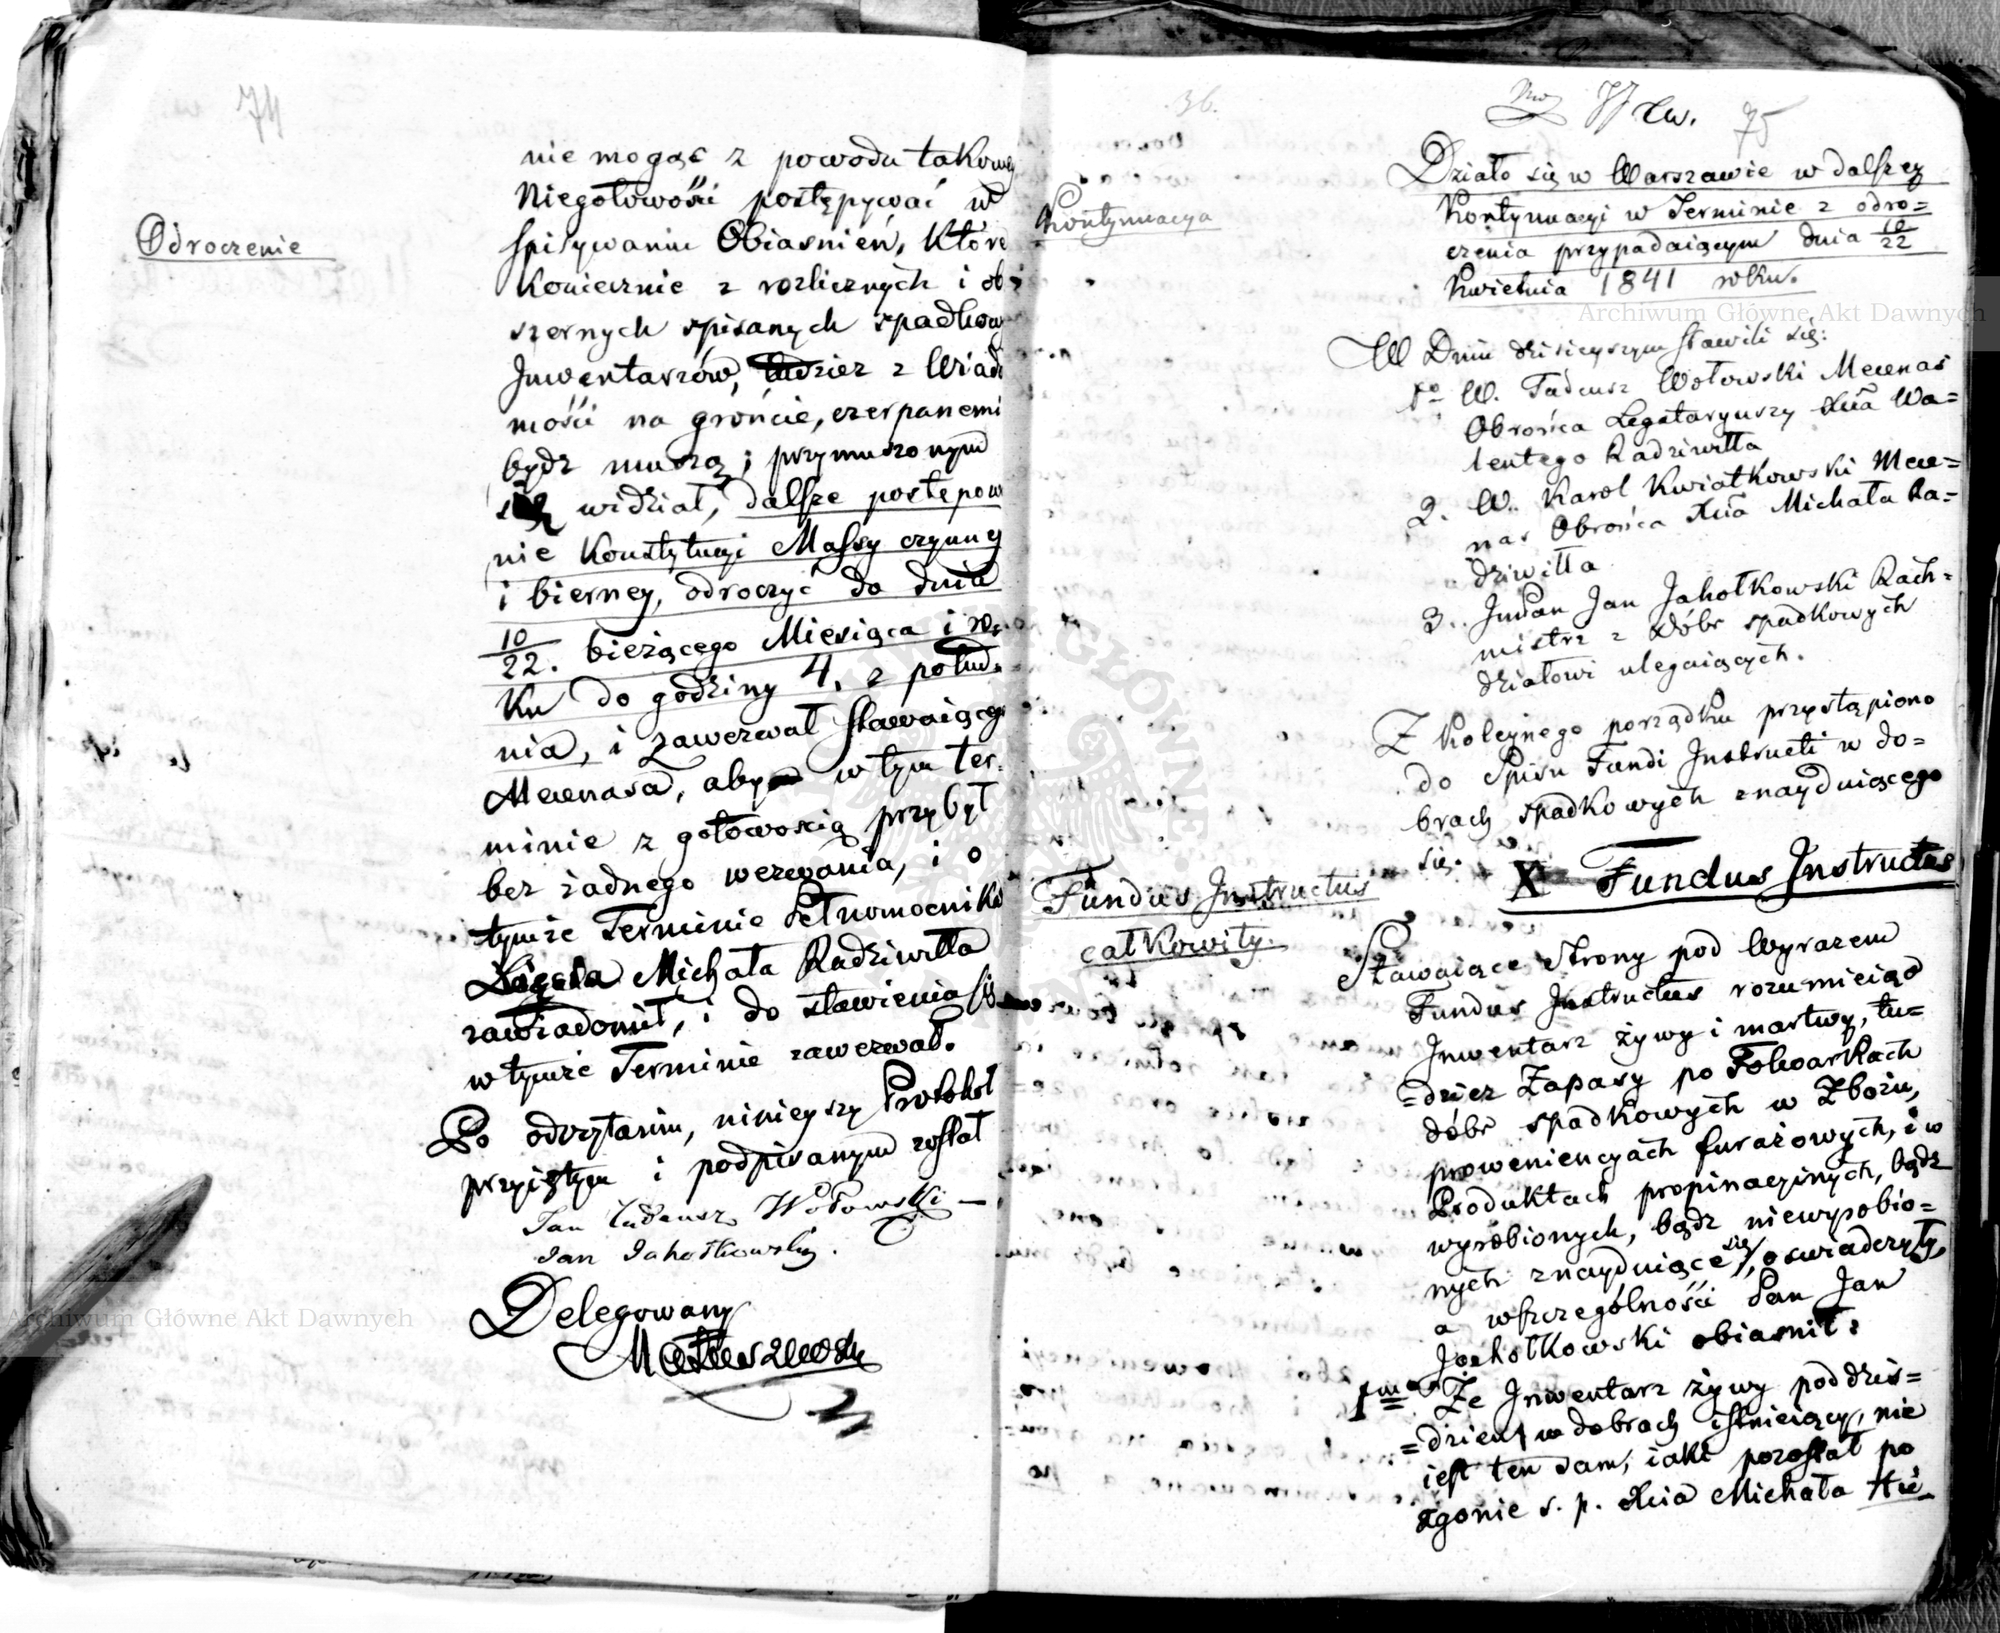 74
Odroczenie
nie mogąc z powodu takowey
Niegotowości postępywać w
spisywaniu Obiasnień, Które
Koniecznie z rozlicznych i ob
szernych spisanych spadkow
Inwentarzów, tudzież z Wiado
mości na gróncie, czerpanemi
bydź muszą; przymuszonym
się widział, dalsze postępowa
nie Konstytucyi Massy czynney
i bierney, odroczyć do dnia
10/22. bieżącego Miesiąca i Ro
Ku do godziny 4. z połud-
nia, i zawezwał stawaiącego
Mecenasa, aby w tym ter-
minie z gotowością przybył
bez żadnego wezwania, i o
tymże Terminie Pełnomocnika
Xięcia Michała Radziwiłła
zawiadomił, i do stawienia się
w tymże Terminie zawezwał.
Po odczytaniu, ninieyszy Protokół
przyiętym i podpisanym został
Jan Tadeusz Wołowski
Jan Jahołkowski.
Delegowany
36.
77
75
Kontynuacya
Działo się w Warszawie w dalszey
Kontynuacyi w Terminie z odro=
czenia przypadaiącym dnia 10/22
Kwietnia 1841 roku.
W Dniu dzisieyszym stawili się:
1o W. Tadeusz Wołowski Mecenas
Obrońca Legataryuszy Xcia Wa=
lentego Radziwiłła
2. W. Karol Kwiatkowski Mece=
nas Obrońca Xcia Michała Ra=
dziwiłła
3. JmPan Jan Jahołkowski Rach=
mistrz z Dóbr spadkowych
działowi ulegaiących.
Z Koleynego porządku przystąpiono
do Spisu Fundi Instructi w do=
brach spadkowych znayduiącego
się.
X Fundus Instructus
Fundus Instructus
całkowity.
Stawaiące Strony pod Wyrazem
Fundus Instructus rozumieiąc
Inwentarz żywy i martwy, tu=
=dzież Zapasy po Folwarkach
dóbr spadkowych w Zbożu,
proweniencyach furażowych, i w
Produktach propinacyinych, bądź
wyrobionych, bądź niewyrobio=
nych znayduiące się, oświadczyły,
a wszczególności Pan Jan
Jahołkowski obiasnił:
1mo Że Inwentarz żywy poddziś=
=dzień w dobrach istnieiący, nie
iest ten sam, iaki pozostał po
zgonie s. p. Xcia Michała He
Archiwum Główne Akt Dawnych
Archiwum Główne Akt Dawnych